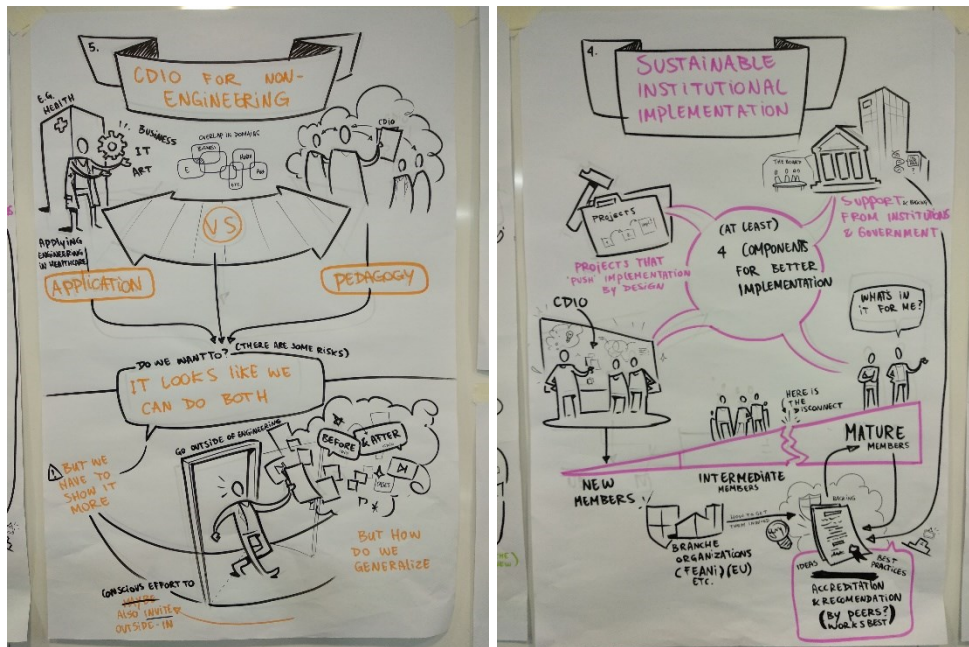 5.
CDIO FOR NON-
ENGINEERING
E.G.
HEALTH
BUSINESS
IT
ART
OVERLAP IN DOMAINS
BUSINESS
E
CDIO
VS
APPLYING
ENGINEERING
IN HEALTHCARE
APPLICATION
PEDAGOGY
DO WE WANT TO? (THERE ARE SOME RISKS)
IT LOOKS LIKE WE
CAN DO BOTH
GO OUTSIDE OF ENGINEERING
BEFORE & AFTER
BUT WE
HAVE TO
SHOW IT
MORE
BUT HOW
DO WE
GENERALIZE
CONSCIOUS EFFORT TO
MAYBE
ALSO INVITE
OUTSIDE-IN
4.
SUSTAINABLE
INSTITUTIONAL
IMPLEMENTATION
THE BOARD
SUPPORT
FROM INSTITUTIONS
& GOVERNMENT
PROJECTS
PROJECTS THAT
"PUSH" IMPLEMENTATION
BY DESIGN
(AT LEAST)
4 COMPONENTS
FOR BETTER
IMPLEMENTATION
WHAT'S IN
IT FOR ME?
CDIO
HERE IS
THE
DISCONNECT
MATURE
MEMBERS
NEW
MEMBERS
INTERMEDIATE
MEMBERS
HOW TO GET
THEM INVOLVED
BRANCHE
ORGANIZATIONS
(FEANI) (EU)
ETC.
IDEAS
BEST
PRACTICES
ACCREDITATION
& RECOMENDATION
(BY PEERS?
WORKS BEST)